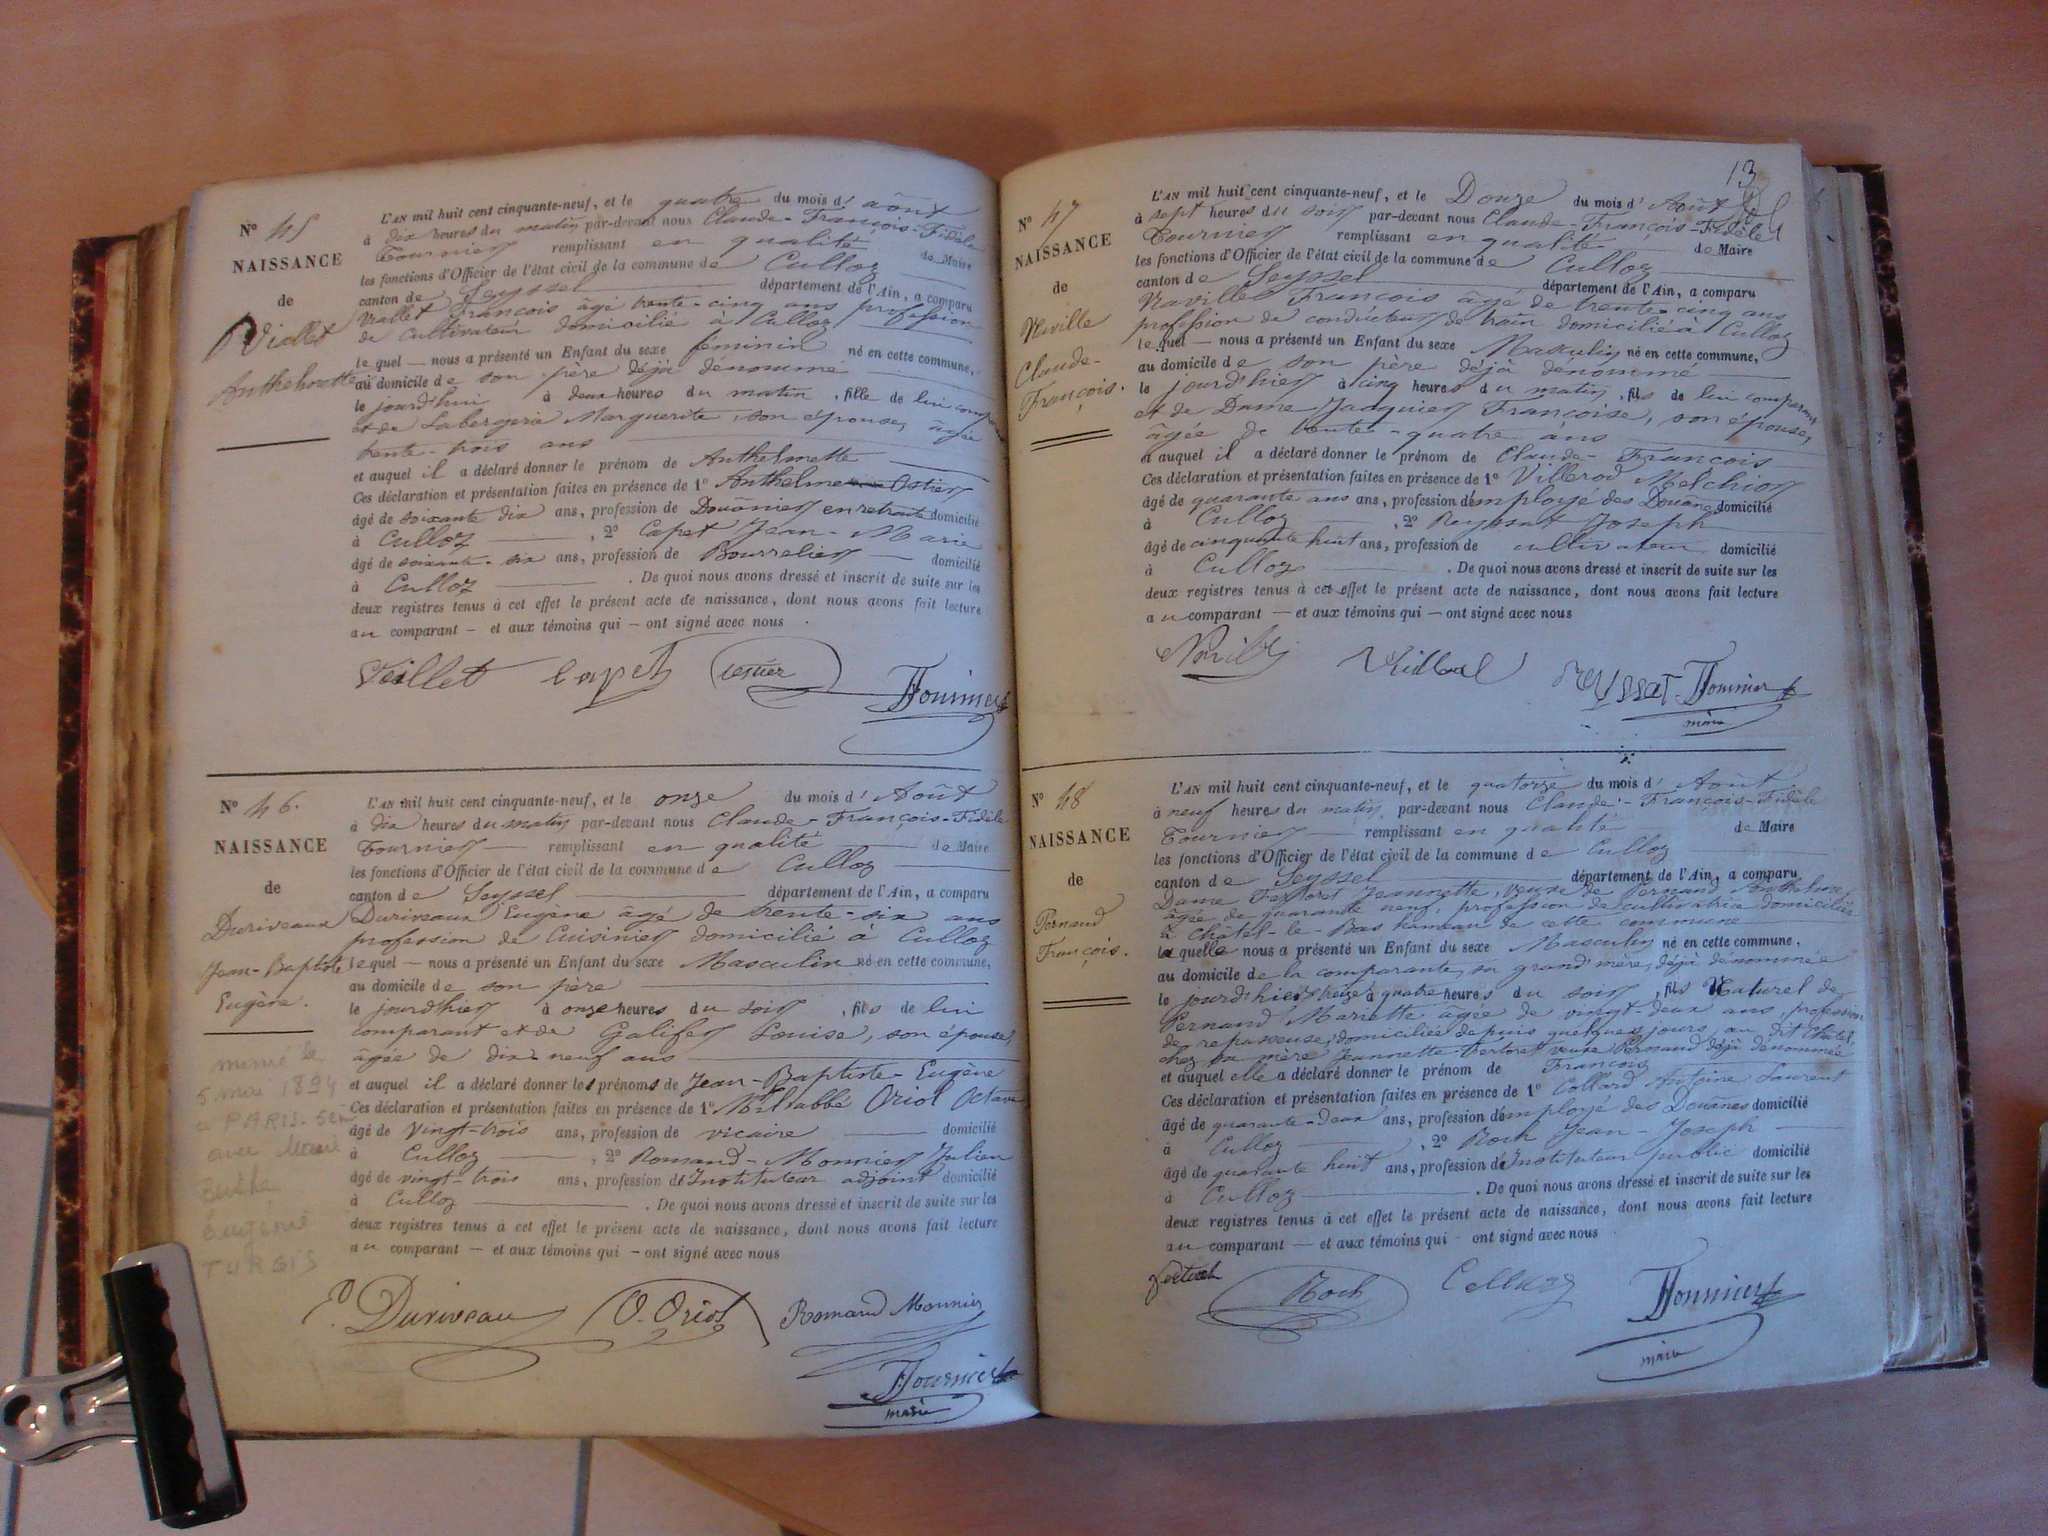 N° 45
NAISSANCE
de
Viallet
Anthelmette
L'AN mil huit cent cinquante-neuf, et le quatre du mois d'août
à dix heures du matin par-devant nous Claude-François-Fidèle
Tournier remplissant en qualité de Maire
les fonctions d'Officier de l'état civil de la commune de Culloz
canton de Seyssel département de l'Ain, a comparu
Viallet François âgé trente-cinq ans profession
de cultivateur domicilié à Culloz
lequel — nous a présenté un Enfant du sexe féminin né en cette commune,
au domicile de son père déjà dénommé
le jourd'hui à deux heures du matin, fille de lui comparant
et de Labergerie Marguerite, son épouse, âgée
trente-trois ans
et auquel il a déclaré donner le prénom de Anthelmette
Ces déclaration et présentation faites en présence de 1° Anthelme Ostier
âgé de soixante dix ans, profession de Douanier en retraite domicilié
à Culloz, 2° Capet Jean-Marie
âgé de soixante-six ans, profession de Bourrelier domicilié
à Culloz. De quoi nous avons dressé et inscrit de suite sur les
deux registres tenus à cet effet le présent acte de naissance, dont nous avons fait lecture
au comparant — et aux témoins qui — ont signé avec nous.
Viallet capet ostier Tournier
N° 46.
NAISSANCE
de
Duriveaux
Jean-Baptiste
Eugène.
marié le
5 mai 1894
à PARIS-5em
avec Marie
Berthe
Eugénie
TURGIS
L'AN mil huit cent cinquante-neuf, et le onze du mois d'Août
à dix heures du matin par-devant nous Claude-François-Fidèle
Tournier — remplissant en qualité de Maire
les fonctions d'Officier de l'état civil de la commune de Culloz
canton de Seyssel département de l'Ain, a comparu
Duriveaux Eugène âgé de trente-six ans
profession de Cuisinier domicilié à Culloz
lequel — nous a présenté un Enfant du sexe Masculin né en cette commune,
au domicile de son père
le jourd'hier à onze heures du soir, fils de lui
comparant et de Galifer Louise, son épouse,
âgée de dix-neuf ans
et auquel il a déclaré donner les prénoms de Jean-Baptiste-Eugène
Ces déclaration et présentation faites en présence de 1° Mr l'abbé Oriol Octave
âgé de vingt-trois ans, profession de vicaire domicilié
à Culloz, 2° Romand-Monnier Julien
âgé de vingt-trois ans, profession d'Instituteur adjoint domicilié
à Culloz. De quoi nous avons dressé et inscrit de suite sur les
deux registres tenus à cet effet le présent acte de naissance, dont nous avons fait lecture
au comparant — et aux témoins qui — ont signé avec nous
E. Duriveau O. Oriol Romand Monnier
Tournier
maire
13
N° 47
NAISSANCE
de
Naville
Claude-
François.
L'AN mil huit cent cinquante-neuf, et le Douze du mois d'Août
à sept heures du soir par-devant nous Claude-François-Fidèle
Tournier remplissant en qualité de Maire
les fonctions d'Officier de l'état civil de la commune de Culloz
canton de Seyssel département de l'Ain, a comparu
Naville François âgé de trente-cinq ans
profession de conducteur de train domicilié à Culloz
lequel — nous a présenté un Enfant du sexe Masculin né en cette commune,
au domicile de son père déjà dénommé
le jourd'hier à cinq heures du matin, fils de lui comparant
et de Dame Jacquier Françoise, son épouse,
âgée de trente-quatre ans
et auquel il a déclaré donner le prénom de Claude-François
Ces déclaration et présentation faites en présence de 1° Villerod Melchior
âgé de quarante ans ans, profession d'employé des Douanes domicilié
à Culloz, 2° Reyssat Joseph
âgé de cinquante huit ans, profession de cultivateur domicilié
à Culloz. De quoi nous avons dressé et inscrit de suite sur les
deux registres tenus à cet effet le présent acte de naissance, dont nous avons fait lecture
au comparant — et aux témoins qui — ont signé avec nous
reyssat Tournier
maire
N° 48
NAISSANCE
de
Pernand
François.
L'AN mil huit cent cinquante-neuf, et le quatorze du mois d'Août
à neuf heures du matin par-devant nous Claude-François-Fidèle
Tournier — remplissant en qualité de Maire
les fonctions d'Officier de l'état civil de la commune de Culloz
canton de Seyssel département de l'Ain, a comparu
Dame Jeannette, veuve de Pernand Anthelme,
âgée de quarante neuf, profession de cultivatrice domiciliée
à Châtel-le-Bas hameau de cette commune
laquelle nous a présenté un Enfant du sexe Masculin né en cette commune.
au domicile de la comparante, sa grand'mère, déjà dénommée
le jourd'hier treize à quatre heures du soir, fils Naturel de
Pernand Mariette âgée de vingt-deux ans, profession
de repasseuse, domiciliée depuis quelques jours au dit Châtel,
chez sa mère Jeannette veuve Pernand déjà dénommée
et auquel elle a déclaré donner le prénom de François
Ces déclaration et présentation faites en présence de 1° Collard Antoine Laurent
âgé de quarante-deux ans, profession d'employé des Douanes domicilié
à Culloz, 2° Roch Jean-Joseph
âgé de quarante huit ans, profession d'Instituteur public domicilié
à Culloz. De quoi nous avons dressé et inscrit de suite sur les
deux registres tenus à cet effet le présent acte de naissance, dont nous avons fait lecture
au comparant — et aux témoins qui — ont signé avec nous.
Roch Tournier
maire